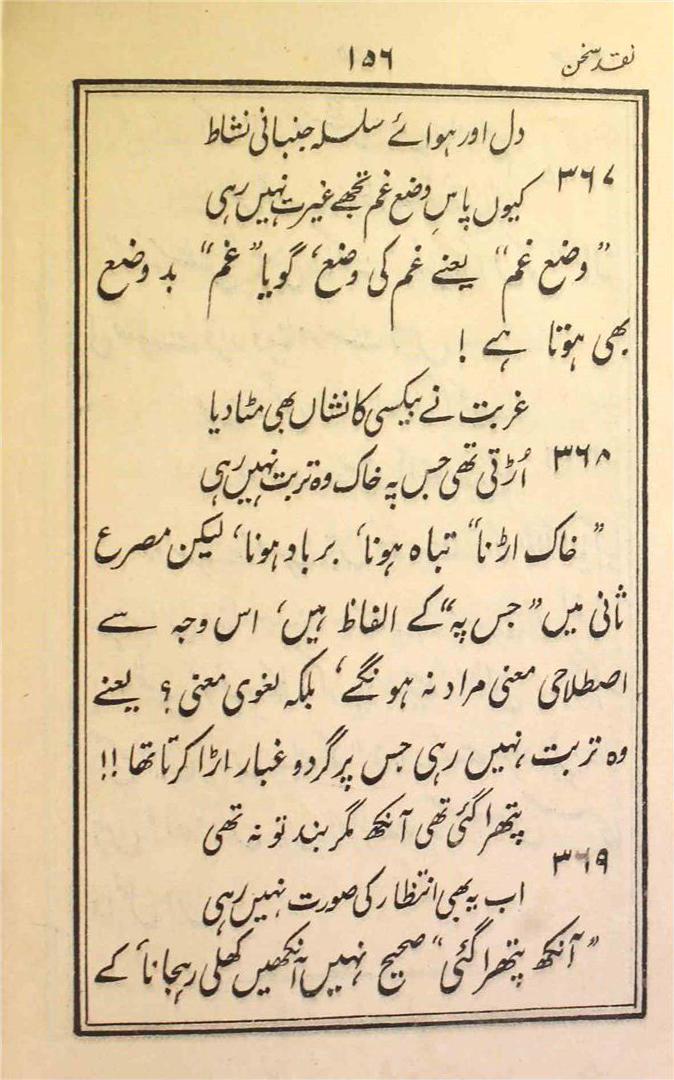 نقد سخن
۱۵۶
دل اور ہوائے سلسلہ جنبانی نشاط
۳۶۷
کیوں پاسِ وضع غم تجھے غیرت نہیں رہی
”وضع غم“ یعنے غم کی وضع، گویا ”غم“ بد وضع
بھی ہوتا ہے !
غربت نے بیکسی کا نشاں بھی مٹا دیا
۳۶۸
اُڑتی تھی جس پہ خاک وہ تربت نہیں رہی
”خاک اڑنا“ تباہ ہونا، برباد ہونا، لیکن مصرع
ثانی میں ”جس پہ“ کے الفاظ ہیں، اس وجہ سے
اصطلاحی معنی مراد نہ ہونگے، بلکہ لغوی معنی؟ یعنے
وہ تربت نہیں رہی جس پر گرد و غبار اڑا کرتا تھا !!
پتھرا گئی تھی آنکھ مگر بند تو نہ تھی
۳۶۹
اب یہ بھی انتظار کی صورت نہیں رہی
”آنکھ پتھرا گئی“ صحیح نہیں ”آنکھیں کھلی رہجانا“ کے